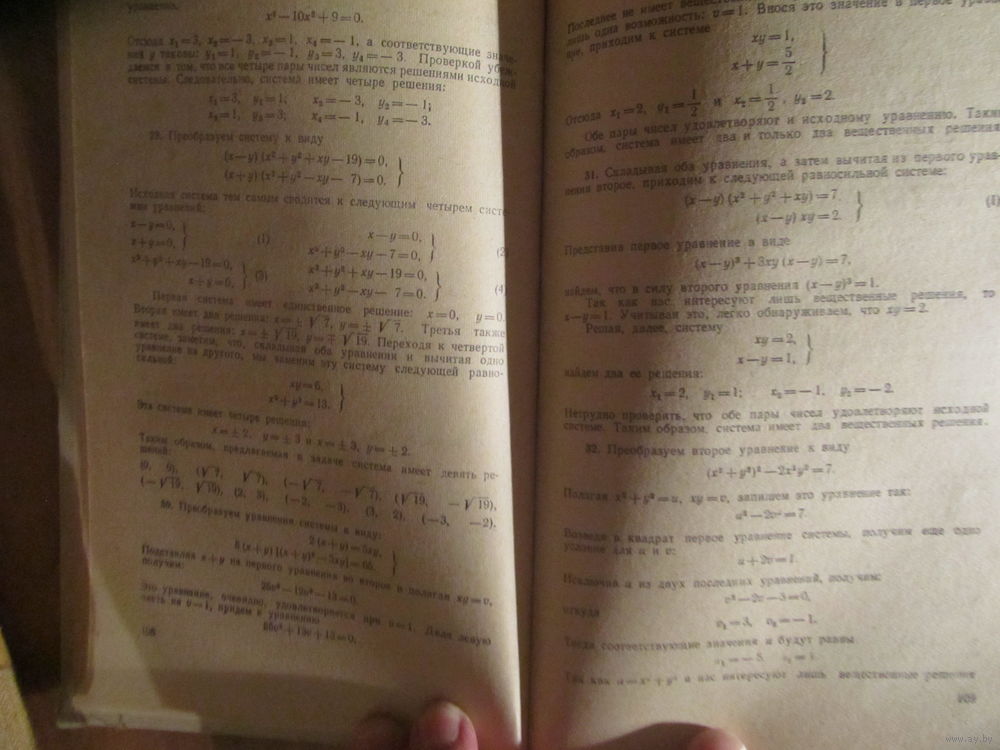 уравнения.
x⁴ — 10x² + 9 = 0.
Отсюда x₁ = 3, x₂ = — 3, x₃ = 1, x₄ = — 1, а соответствующие значе-
ния y таковы: y₁ = 1, y₂ = — 1, y₃ = 3, y₄ = — 3. Проверкой убеж-
даемся в том, что все четыре пары чисел являются решениями исходной
системы. Следовательно, система имеет четыре решения:
x₁ = 3, y₁ = 1; x₂ = — 3, y₂ = — 1;
x₃ = 1, y₃ = 3; x₄ = — 1, y₄ = — 3.
29. Преобразуем систему к виду
(x — y) (x² + y² + xy — 19) = 0,
(x + y) (x² + y² — xy — 7) = 0.
Исходная система тем самым сводится к следующим четырем систе-
мам уравнений:
x — y = 0,
x + y = 0, (1)
x — y = 0,
x² + y² — xy — 7 = 0, (2
x² + y² + xy — 19 = 0,
x + y = 0, (3)
x² + y² + xy — 19 = 0,
x² + y² — xy — 7 = 0. (4
Первая система имеет единственное решение: x = 0, y = 0.
Вторая имеет два решения: x = ± √7, y = ± √7. Третья также
имеет два решения: x = ± √19, y = ∓ √19. Переходя к четвертой
системе, заметим, что, складывая оба уравнения и вычитая одно
уравнение из другого, мы заменим эту систему следующей равно-
сильной:
xy = 6,
x² + y² = 13.
Эта система имеет четыре решения:
x = ± 2, y = ± 3 и x = ± 3, y = ± 2.
Таким образом, предлагаемая в задаче система имеет девять ре-
шений:
(0, 0), (√7, √7), (— √7, — √7), (√19, — √19),
(— √19, √19), (2, 3), (—2, —3), (3, 2), (—3, —2).
30. Преобразуем уравнения системы к виду:
2 (x + y) = 5xy,
8 (x + y) [(x + y)² — 3xy] = 65.
Подставляя x + y из первого уравнения во второе и полагая xy = v,
получим:
25v³ — 12v² — 13 = 0.
Это уравнение, очевидно, удовлетворяется при v = 1. Деля левую
часть на v — 1, придем к уравнению
25v² + 13v + 13 = 0.
168
Последнее не имеет веществен
лишь одна возможность: v = 1. Внося это значение в первое урав
ние, приходим к системе
xy = 1,
x + y = 5/2.
Отсюда x₁ = 2, y₁ = 1/2 и x₂ = 1/2, y₂ = 2.
Обе пары чисел удовлетворяют и исходному уравнению. Таки
образом, система имеет два и только два вещественных решения
31. Складывая оба уравнения, а затем вычитая из первого урав-
нения второе, приходим к следующей равносильной системе:
(x — y) (x² + y² + xy) = 7,
(x — y) xy = 2. (1)
Представив первое уравнение в виде
(x — y)³ + 3xy (x — y) = 7,
найдем, что в силу второго уравнения (x — y)³ = 1.
Так как нас интересуют лишь вещественные решения, то
x — y = 1. Учитывая это, легко обнаруживаем, что xy = 2.
Решая, далее, систему
xy = 2,
x — y = 1,
найдем два ее решения:
x₁ = 2, y₁ = 1; x₂ = — 1, y₂ = — 2.
Нетрудно проверить, что обе пары чисел удовлетворяют исходной
системе. Таким образом, система имеет два вещественных решения.
32. Преобразуем второе уравнение к виду
(x² + y²)² — 2x²y² = 7.
Полагая x² + y² = u, xy = v, запишем это уравнение так:
u² — 2v² = 7.
Возведя в квадрат первое уравнение системы, получим еще одно
условие для u и v:
u + 2v = 1.
Исключив u из двух последних уравнений, получим:
v² — 2v — 3 = 0,
откуда
v₁ = 3, v₂ = — 1.
Тогда соответствующие значения u будут равны
u₁ = — 5, u₂ = 3.
Так как u = x² + y² и нас интересуют лишь вещественные решения
169
www.ay.by